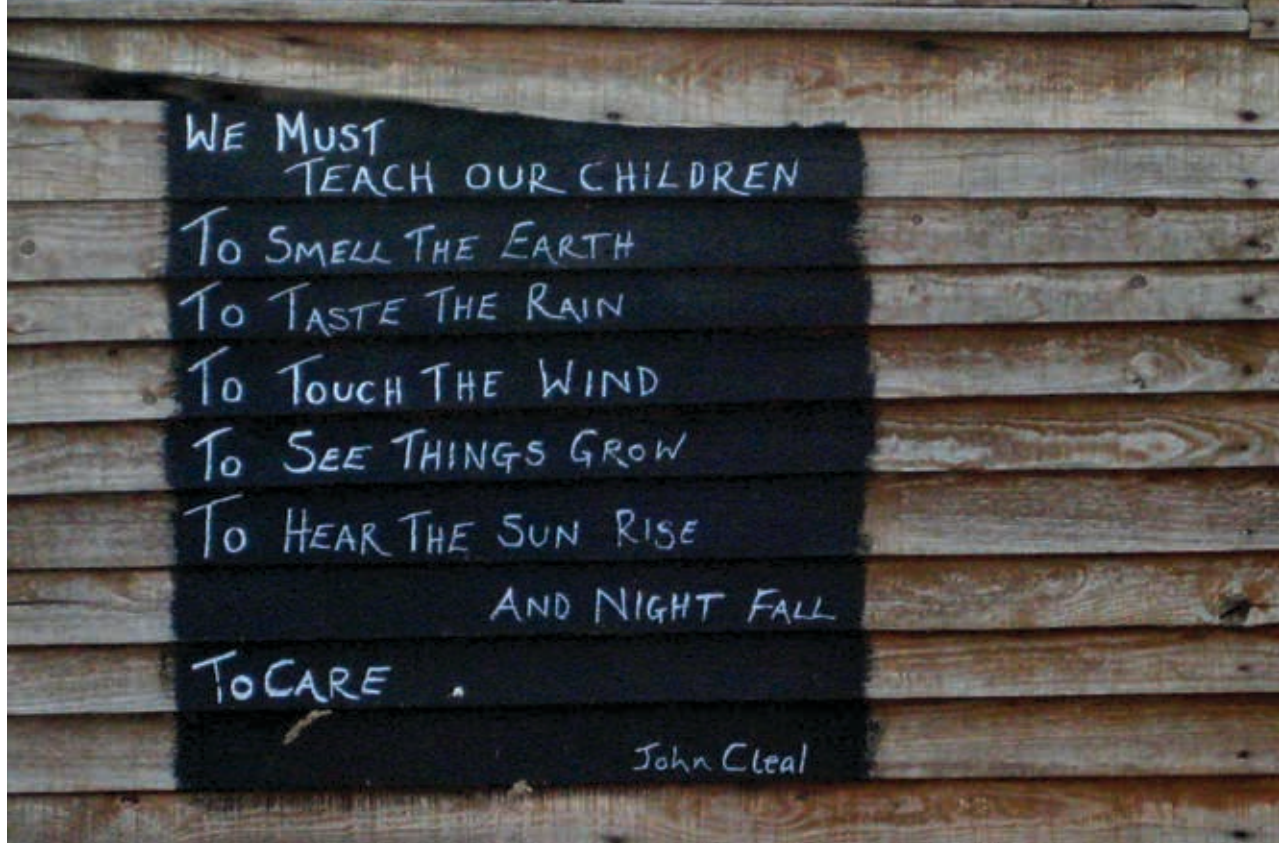 WE MUST
TEACH OUR CHILDREN
TO SMELL THE EARTH
TO TASTE THE RAIN
TO TOUCH THE WIND
TO SEE THINGS GROW
TO HEAR THE SUN RISE
AND NIGHT FALL
TO CARE .
John Cleal